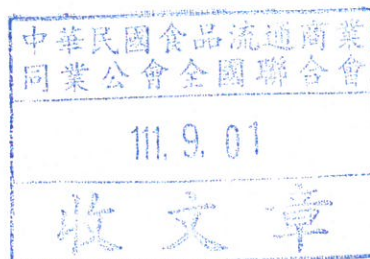 中華民國食品流通商業
同業公會全國聯合會
111. 9. 01
收文章